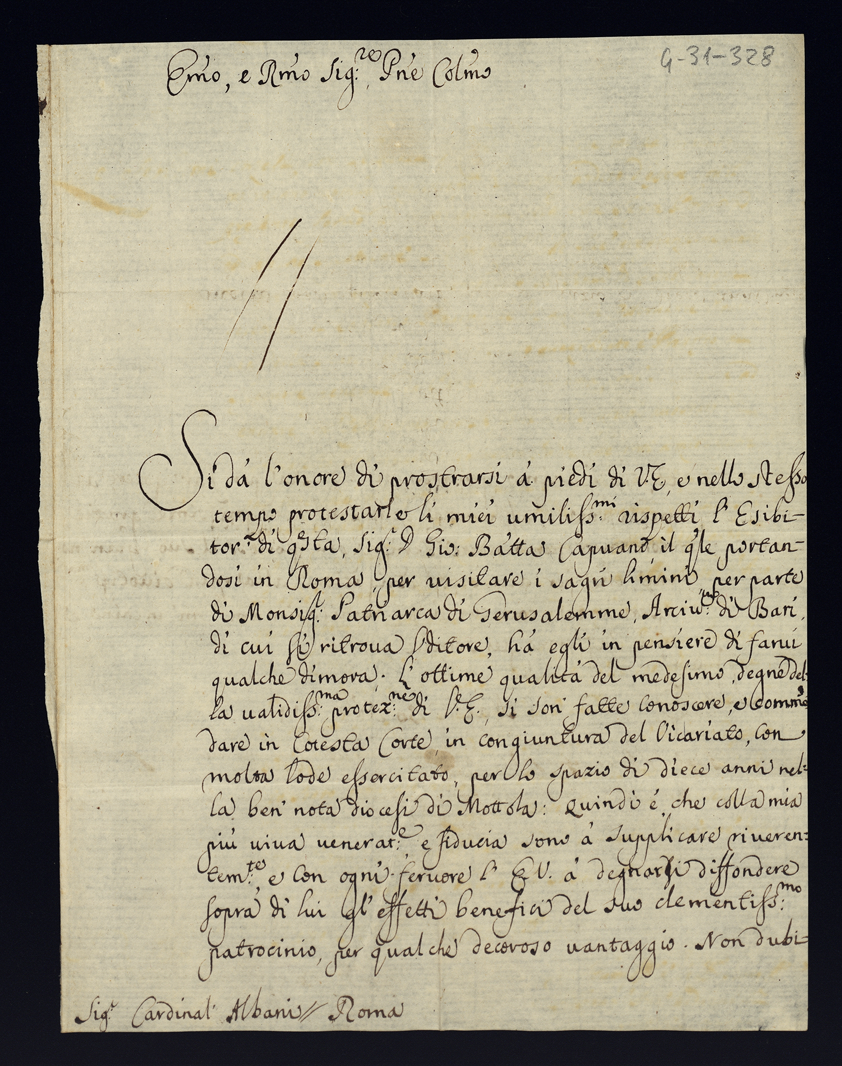 G-31-328
Em̃o, e Rm̃o Sig:re Pñe Colm̃o
Si dà l'onore di prostrarsi à piedi di V.E, e nello stesso
tempo protestarle li miei umiliss:mi rispetti l'Esibi-
tor:e di q̃sta, Sig:r D Gio: Batta Capuano, il q̃le portan-
dosi in Roma, per visitare i sagri limini, per parte
di Monsig:r Patriarca di Gerusalemme, Arciv:o di Bari,
di cui si ritrova Uditore, há egli in pensiere di farvi
qualche dimora. L'ottime qualità del medesimo, degne del-
la validiss:ma protez:ne di V.E., si son' fatte conoscere, e comm̃e
dare in cotesta Corte, in congiuntura del Vicariato, con
molta lode essercitato, per lo spazio di diece anni nel-
la ben' nota diocesi di Mottola: Quindi é, che colla mia
più viva venerat:e e fiducia sono à supplicare riveren-
tem:te e con ogni fervore l' E V. á degnarsi diffondere
sopra di lui gl'effetti benefici del suo clementiss:mo
patrocinio, per qualche decoroso vantaggio. Non dubi-
Sig:r Cardinal' Albani // Roma